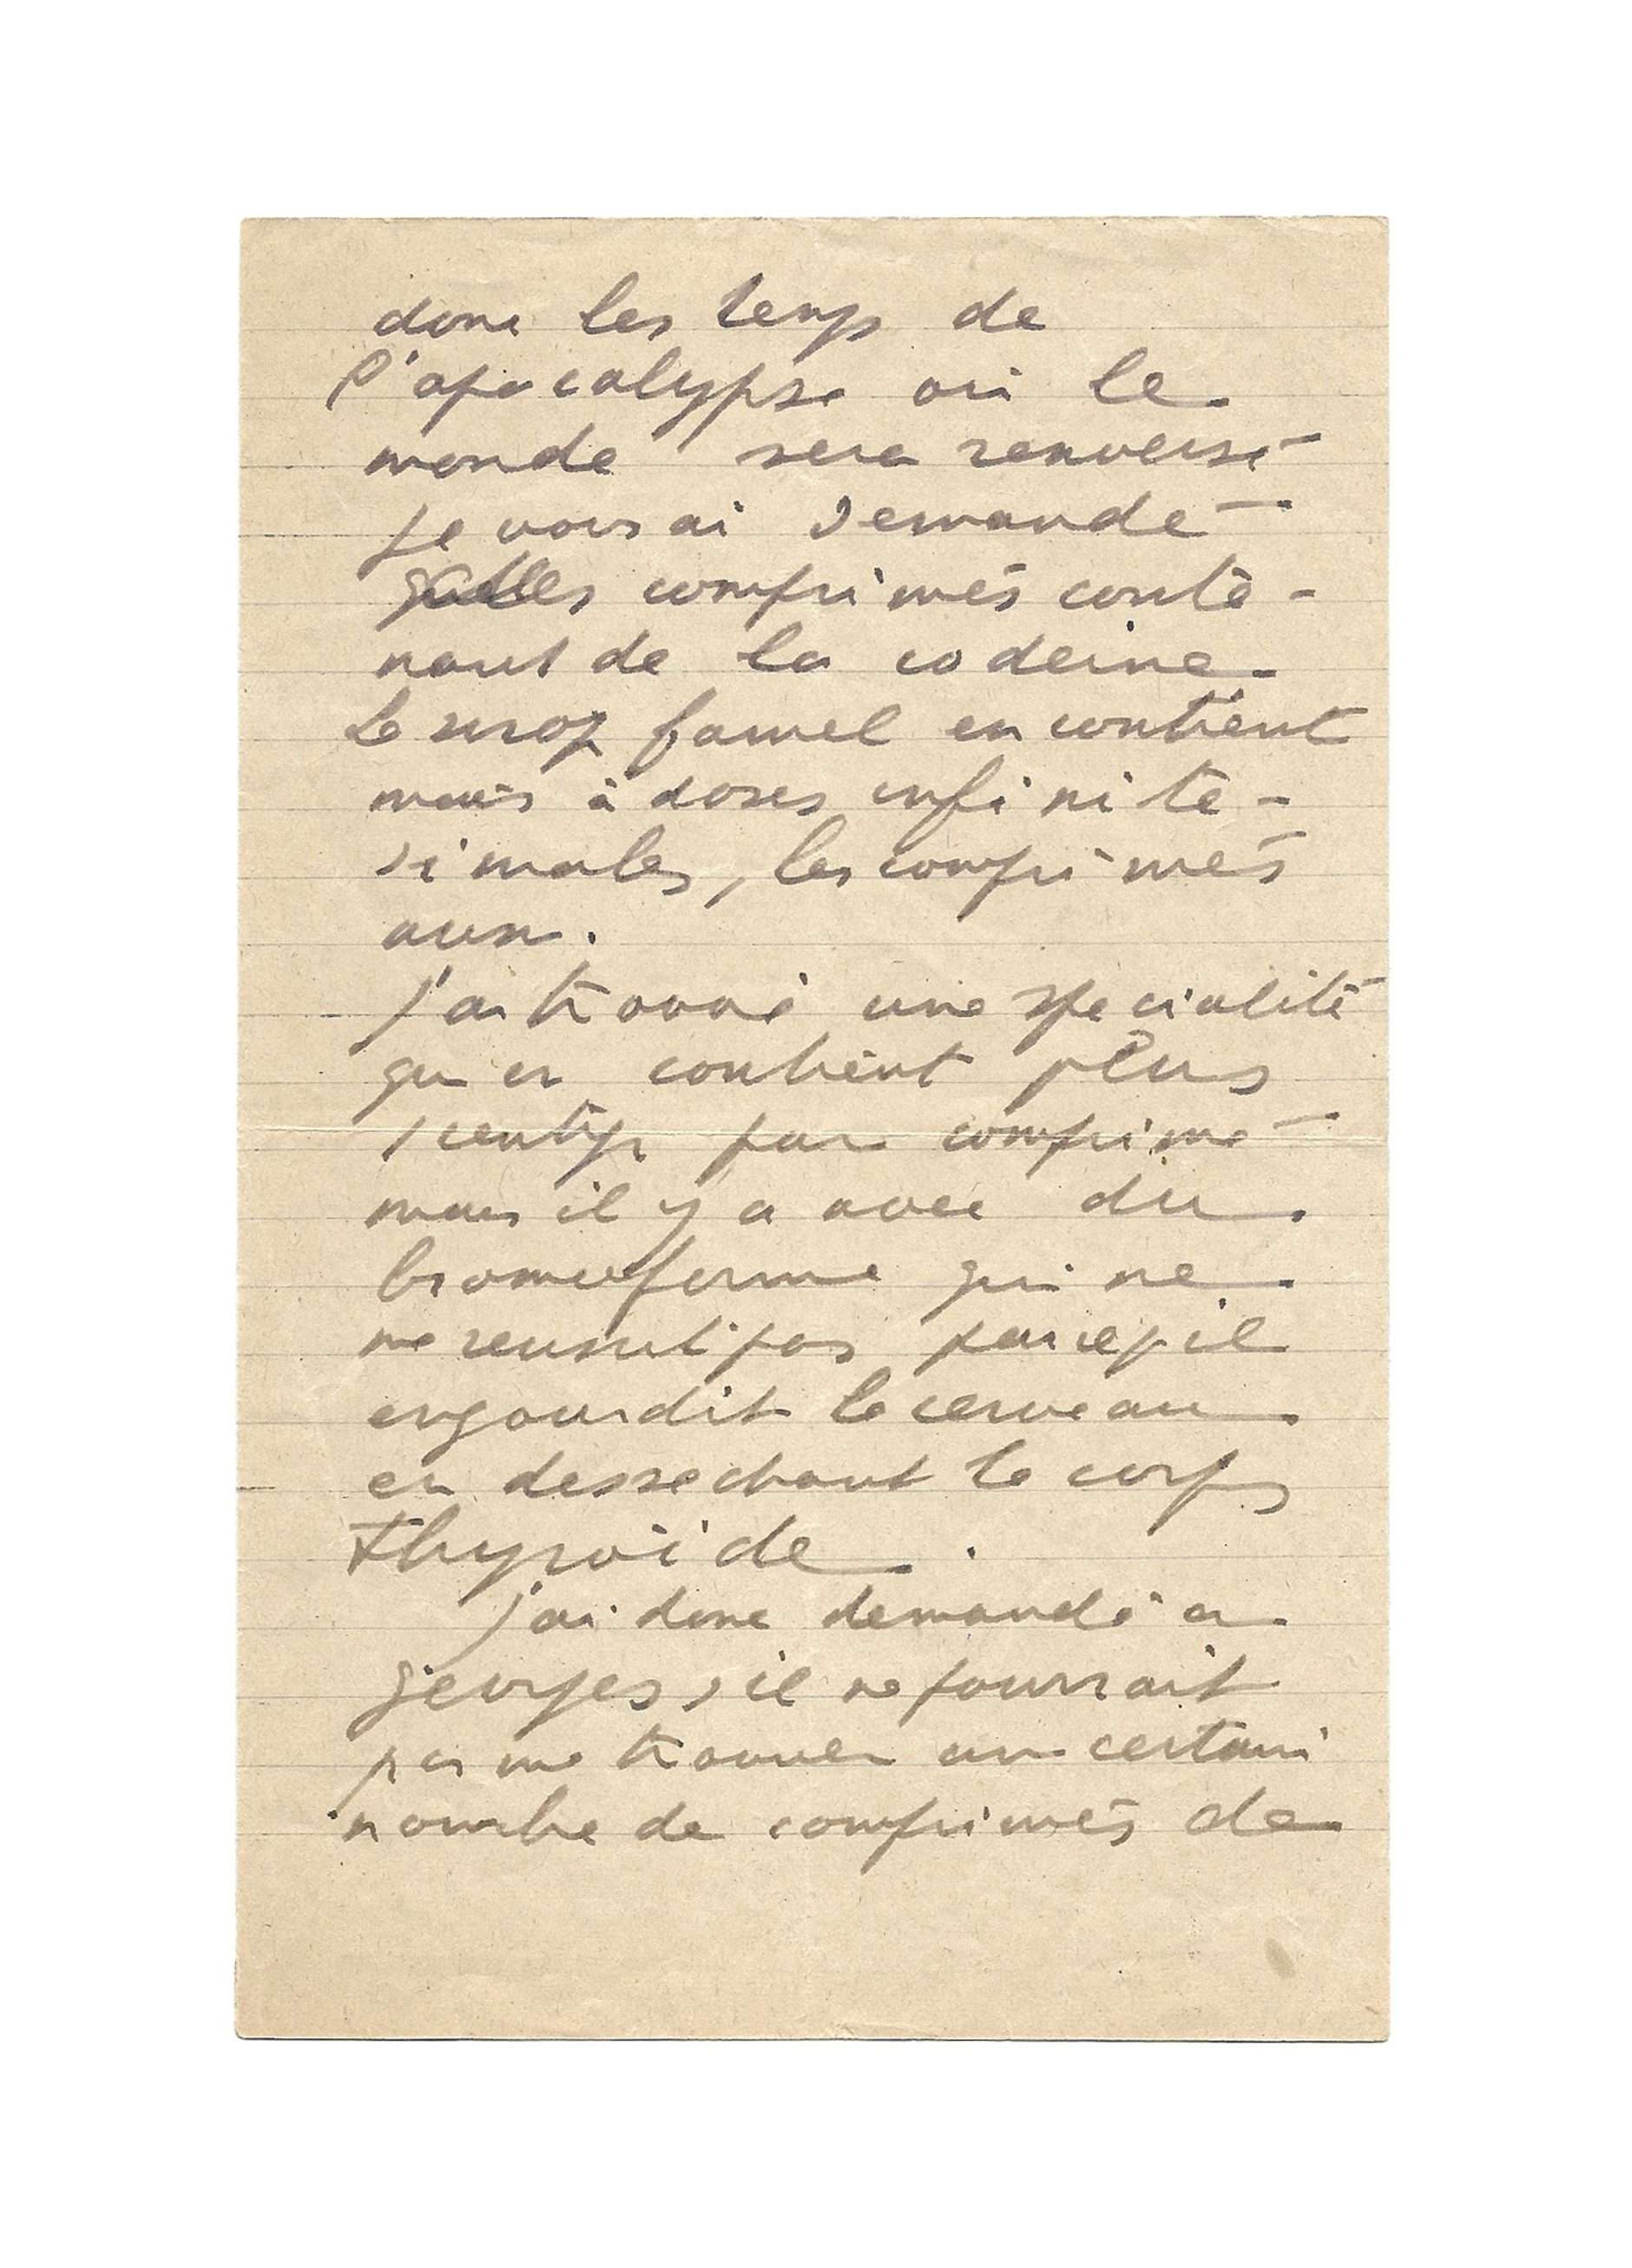 donc les temps de
l'apocalypse où le
monde sera renversé
je vous ai demandé
qques comprimés conte-
nant de la codeine.
Le sirop famel en contient
mais à doses infinité-
simales, les comprimés
aussi.
J'ai trouvé une spécialité
qui en contient plus
1 centigr par comprimé
mais il y a avec du
bromoforme qui ne
me reussit pas parcequ'il
engourdit le cerveau
en dessechant le corps
thyroïde.
j'ai donc demandé a
georges s'il ne pourrait
pas me trouver un certain
nombre de comprimés de